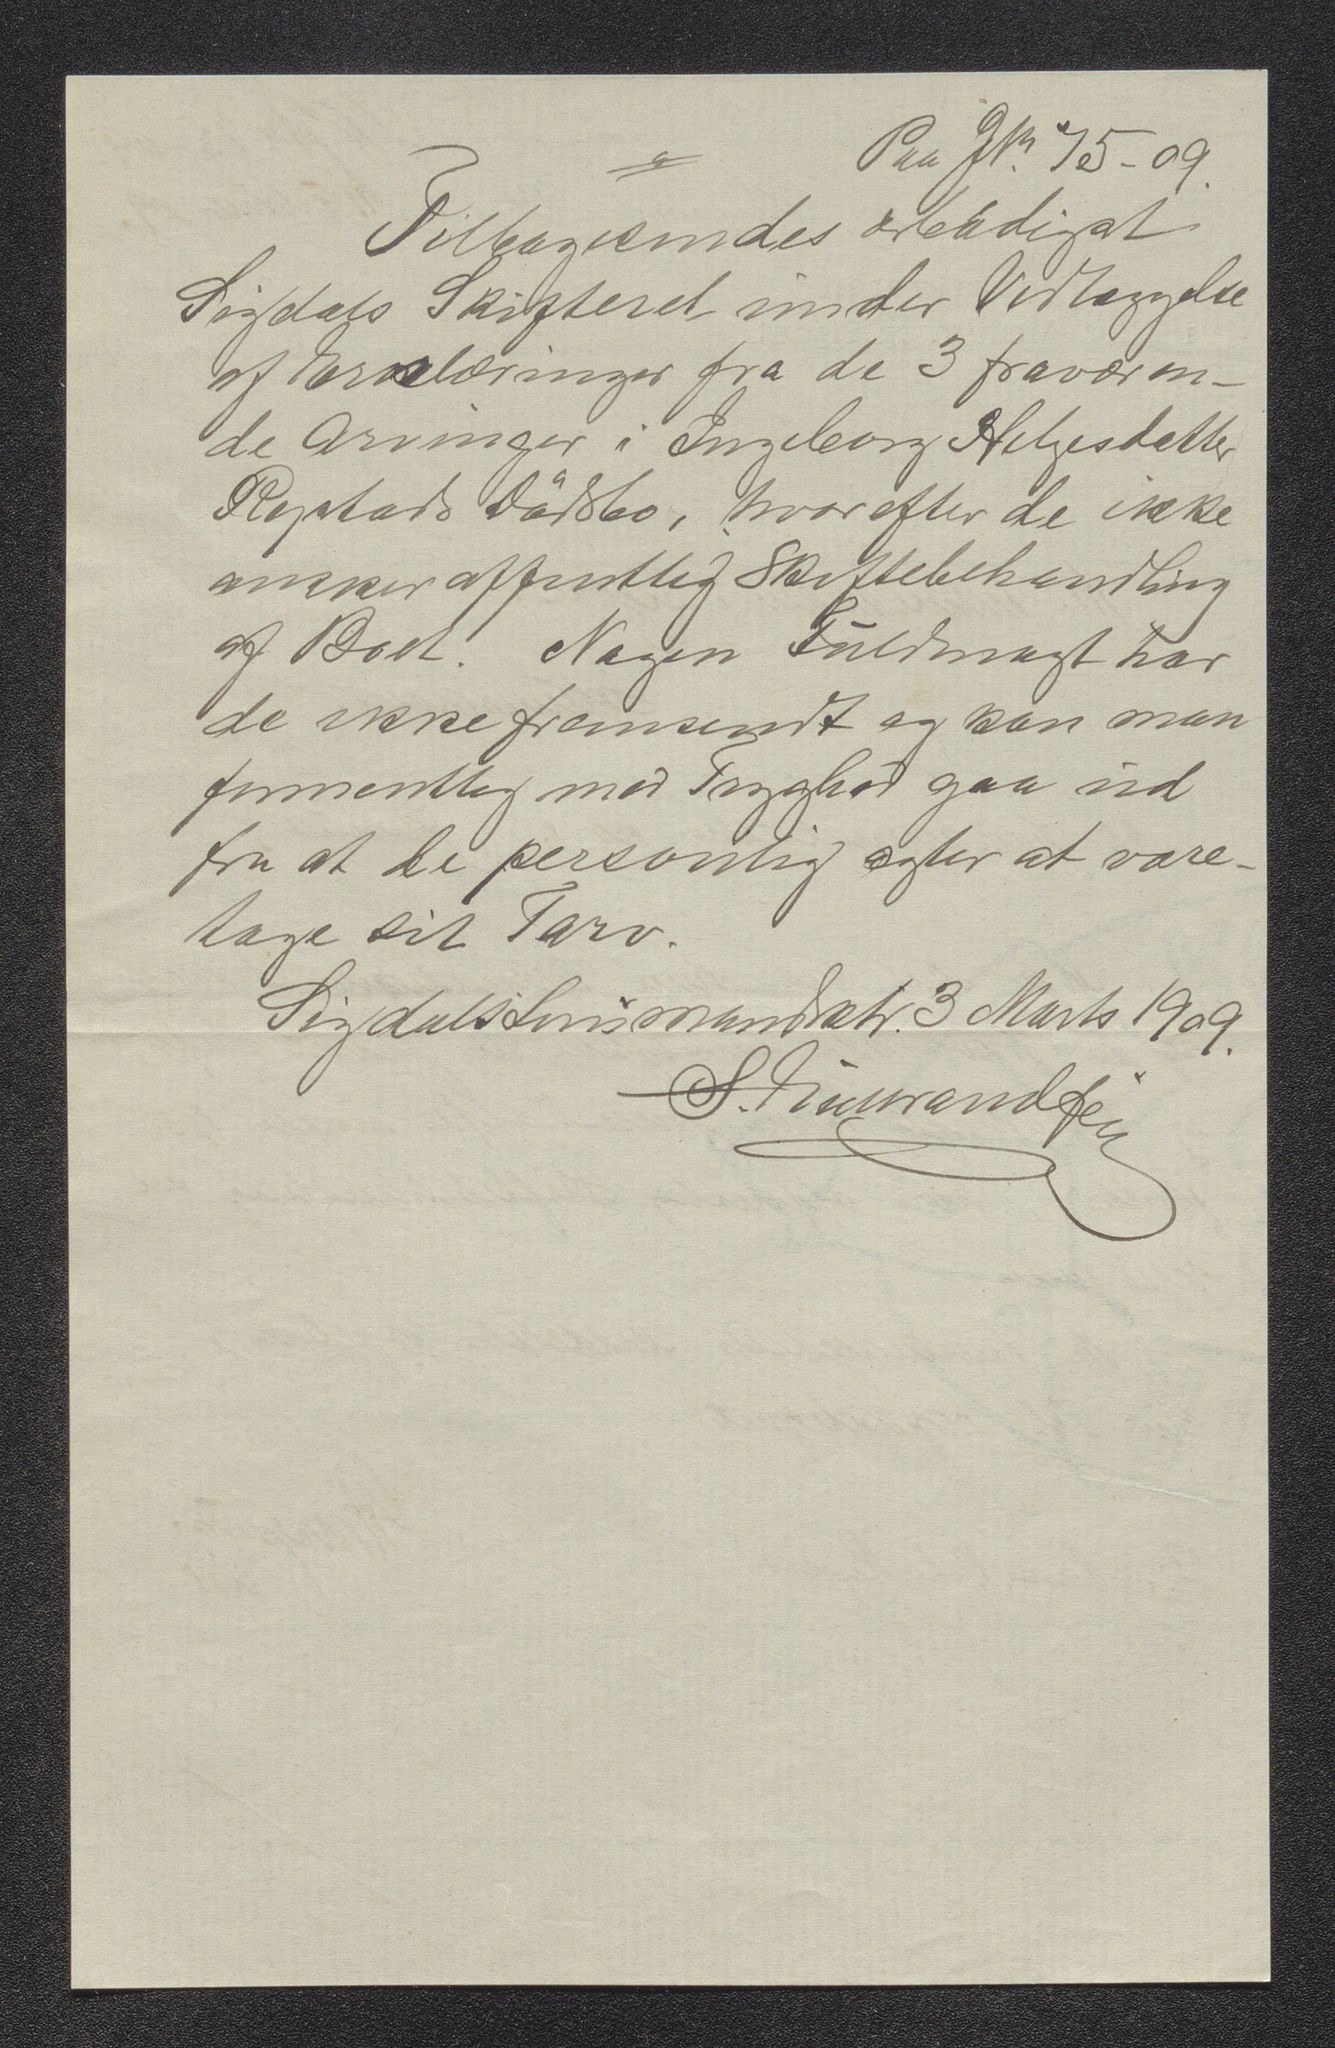 Paa JN. 75-09.
Tilbagesendes ærbødigst
Sigdals Skifteret under Vedlæggelse
af Erklæringer fra de 3 fraværen-
de Arvinger i Ingeborg Helgesdatter
Dødsbo, hvorefter de ikke
ønsker offentlig Skiftebehandling
af Boet. Nogen Fuldmagt har
de ikke fremsendt og kan man
formentlig med Tryghed gaa ud
fra at de personlig agter at vare-
tage sit Tarv.
Sigdals Lensmandsktr. 3 Marts 1909.